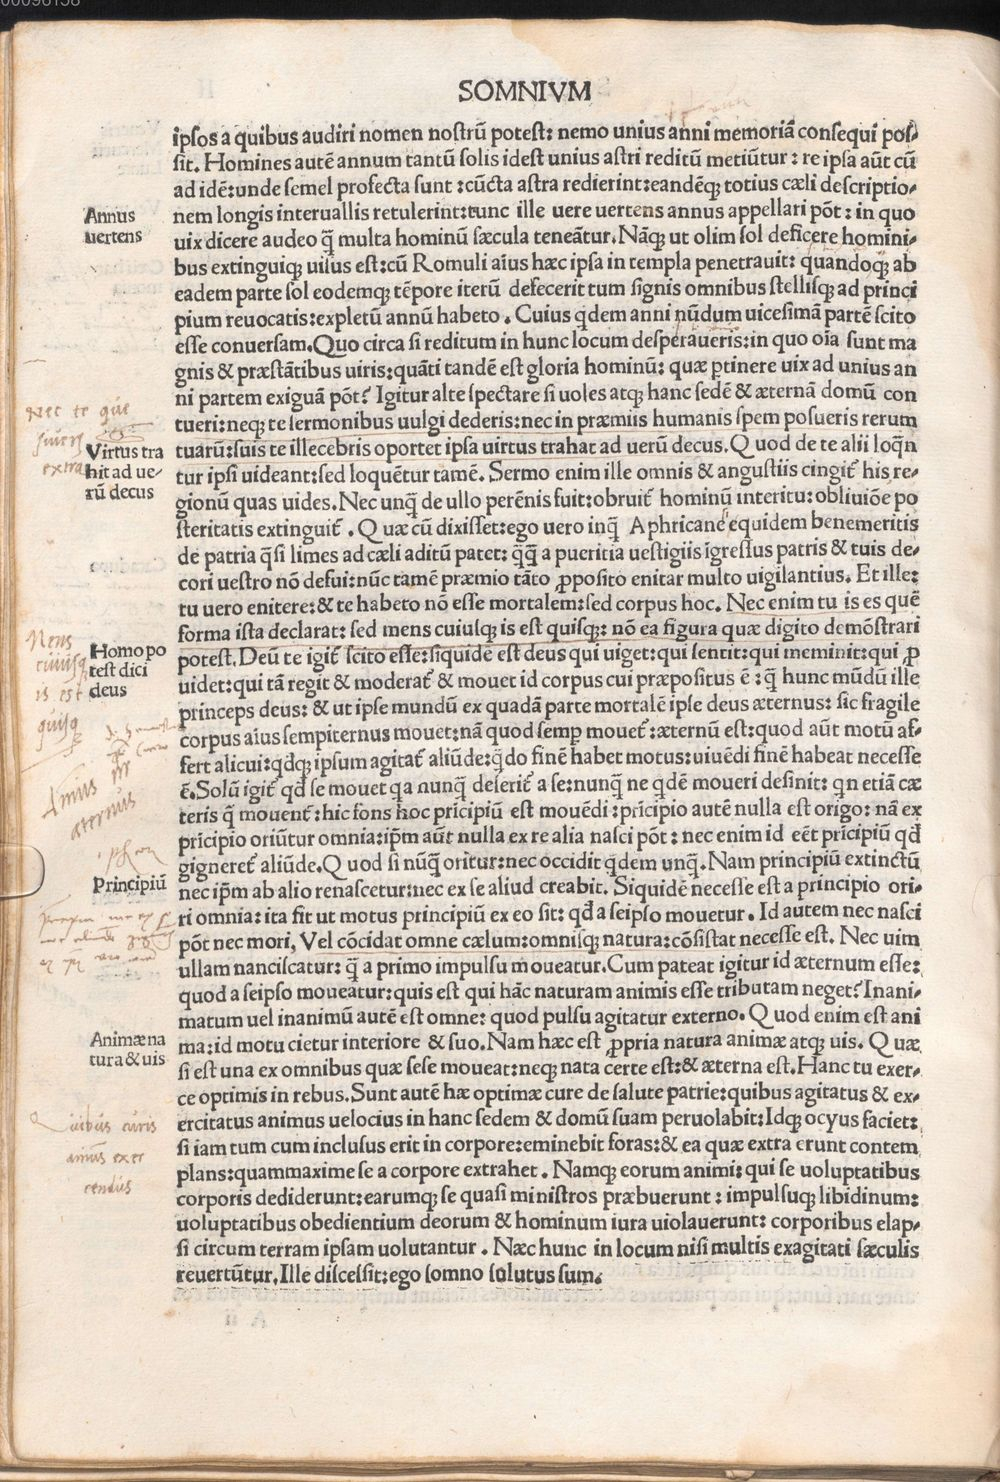 SOMNIVM
ipsos a quibus audiri nomen nostrũ potest: nemo unius anni memoriã consequi pos-
sit. Homines autẽ annum tantũ solis idest unius astri reditũ metiũtur: re ipsa aũt cũ
ad idẽ: unde semel profecta sunt: cũcta astra redierint: eandẽq; totius cæli descriptio-
nem longis interuallis retulerint: tunc ille uere uertens annus appellari põt: in quo
uix dicere audeo q̃ multa hominũ sæcula teneãtur. Nãq; ut olim sol deficere homini-
bus extinguiq; uisus est: cũ Romuli aĩus hæc ipsa in templa penetrauit: quandoq; ab
eadem parte sol eodemq; tẽpore iterũ defecerit tum signis omnibus stellisq; ad princi
pium reuocatis: expletũ annũ habeto. Cuius qdem anni nũdum uicesimã partẽ scito
esse conuersam. Quo circa si reditum in hunc locum desperaueris: in quo oĩa sunt ma
gnis & præstãtibus uiris: quãti tandẽ est gloria hominũ: quæ ꝑtinere uix ad unius an
ni partem exiguã põt? Igitur alte spectare si uoles atq; hanc sedẽ & æternã domũ con
tueri: neq; te sermonibus uulgi dederis: nec in præmiis humanis spem posueris rerum
tuarũ: suis te illecebris oportet ipsa uirtus trahat ad uerũ decus. Quod de te alii loq̃n
tur ipsi uideant: sed loquẽtur tamẽ. Sermo enim ille omnis & angustiis cingit᷑ his re-
gionũ quas uides. Nec unq̃ de ullo perẽnis fuit: obruit᷑ hominũ interitu: obliuiõe po
steritatis extinguit᷑. Quæ cũ dixisset: ego uero inq̃ Aphricane equidem benemeritis
de patria q̃si limes ad cæli aditũ patet: q̃q̃ a pueritia uestigiis ĩgressus patris & tuis de-
cori uestro nõ defui: nũc tamẽ præmio tãto ꝓposito enitar multo uigilantius. Et ille:
tu uero enitere: & te habeto nõ esse mortalem: sed corpus hoc. Nec enim tu is es quẽ
forma ista declarat: sed mens cuiusq; is est quisq;: nõ ea figura quæ digito demõstrari
potest. Deũ te igit᷑ scito esse: siquidẽ est deus qui uiget: qui sentit: qui meminit: qui ꝓ
uidet: qui tã regit & moderat᷑ & mouet id corpus cui præpositus ẽ: q̃ hunc mũdũ ille
princeps deus: & ut ipse mundũ ex quadã parte mortalẽ ipse deus æternus: sic fragile
corpus aĩus sempiternus mouet: nã quod semꝑ mouet᷑: æternũ est: quod aũt motũ af-
fert alicui: qdq; ipsum agitat᷑ aliũde: q̃do finẽ habet motus: uiuẽdi finẽ habeat necesse
ẽ. Solũ igit᷑ qd̃ se mouet qa nunq̃ deserit᷑ a se: nunq̃ ne qdẽ moueri desinit: qn etiã cæ
teris q̃ mouent᷑: hic fons hoc prĩcipiũ est mouẽdi: prĩcipio autẽ nulla est origo: nã ex
prĩcipio oriũtur omnia: ip̃m aũt nulla ex re alia nasci põt: nec enim id eẽt prĩcipiũ qd̃
gigneret᷑ aliũde. Quod si nũq̃ oritur: nec occidit qdem unq̃. Nam principiũ extinctũ
nec ip̃m ab alio renascetur: nec ex se aliud creabit. Siquidẽ necesse est a principio ori-
ri omnia: ita fit ut motus principiũ ex eo sit: qd̃ a seipso mouetur. Id autem nec nasci
põt nec mori. Vel cõcidat omne cælum: omnisq; natura: cõsistat necesse est. Nec uim
ullam nanciscatur: q̃ a primo impulsu moueatur. Cum pateat igitur id æternum esse:
quod a seipso moueatur: quis est qui hãc naturam animis esse tributam neget? Inani-
matum uel inanimũ autẽ est omne: quod pulsu agitatur externo. Quod enim est ani
ma: id motu cietur interiore & suo. Nam hæc est ꝓpria natura animæ atq; uis. Quæ
si est una ex omnibus quæ sese moueat: neq; nata certe est: & æterna est. Hanc tu exer-
ce optimis in rebus. Sunt autẽ hæ optimæ curæ de salute patrie: quibus agitatus & ex-
ercitatus animus uelocius in hanc sedem & domũ suam peruolabit: Idq; ocyus faciet:
si iam tum cum inclusus erit in corpore: eminebit foras: & ea quæ extra erunt contem
plans: quammaxime se a corpore extrahet. Namq; eorum animi: qui se uoluptatibus
corporis dediderunt: earumq; se quasi ministros præbuerunt: impulsuq; libidinum:
uoluptatibus obedientium deorum & hominum iura uiolauerunt: corporibus elap-
si circum terram ipsam uolutantur. Næc hunc in locum nisi multis exagitati sæculis
reuertũtur. Ille discessit: ego somno solutus sum.
Annus
uertens
Nec te que
extra
Virtus tra
hit ad ue-
rũ decus
Mens
cuiusq
is est
quisq
Homo po
test dici
deus
Animus
aeternus
Principiũ
Animæ na
tura & uis
uibus curis
animus exer
cendus